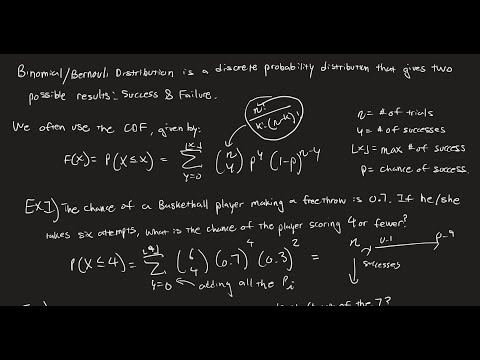 Binomial/Bernouli Distribution is a discrete probability distribution that gives two
possible results: Success & Failure.
We often use the CDF, given by:
F(x) = P(X≤x) = ⌊x⌋ Σ y=0 (n y) p^y (1-p)^(n-y)
n! / k!·(n-k)!
n = # of trials
y = # of successes
⌊x⌋ = max # of success
p = chance of success
EX1) The chance of a Basketball player making a freethrow is 0.7. If he/she
takes six attempts, what is the chance of the player scoring 4 or fewer?
P(X≤4) = ⌊4⌋ Σ y=0 (6 4) (0.7)^4 (0.3)^2 =
adding all the Pi
n 0.1 0.9
successes
of the 7?